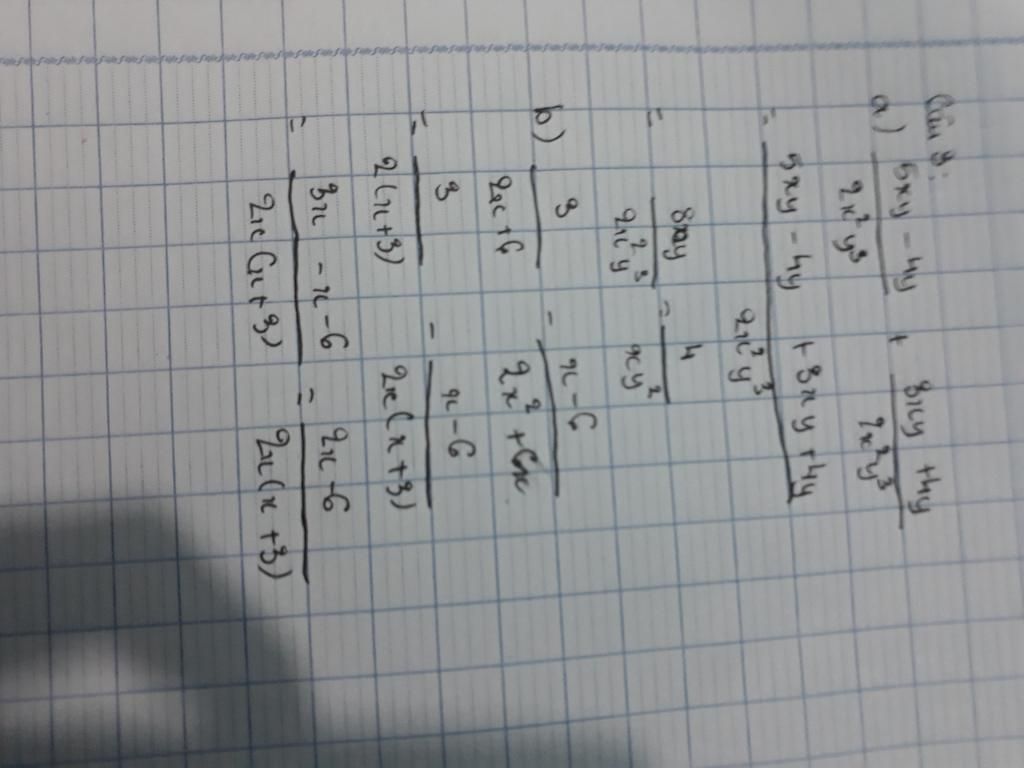 Câu 3:
a) (5xy - 4y)/(2x²y³) + (3xy + 4y)/(2x²y³)
= (5xy - 4y + 3xy + 4y)/(2x²y³)
= 8xy/(2x²y³) = 4/(xy²)
b) 3/(2x + 6) - (x - 6)/(2x² + 6x)
= 3/(2(x + 3)) - (x - 6)/(2x(x + 3))
= (3x - x - 6)/(2x(x + 3)) = (2x - 6)/(2x(x + 3))